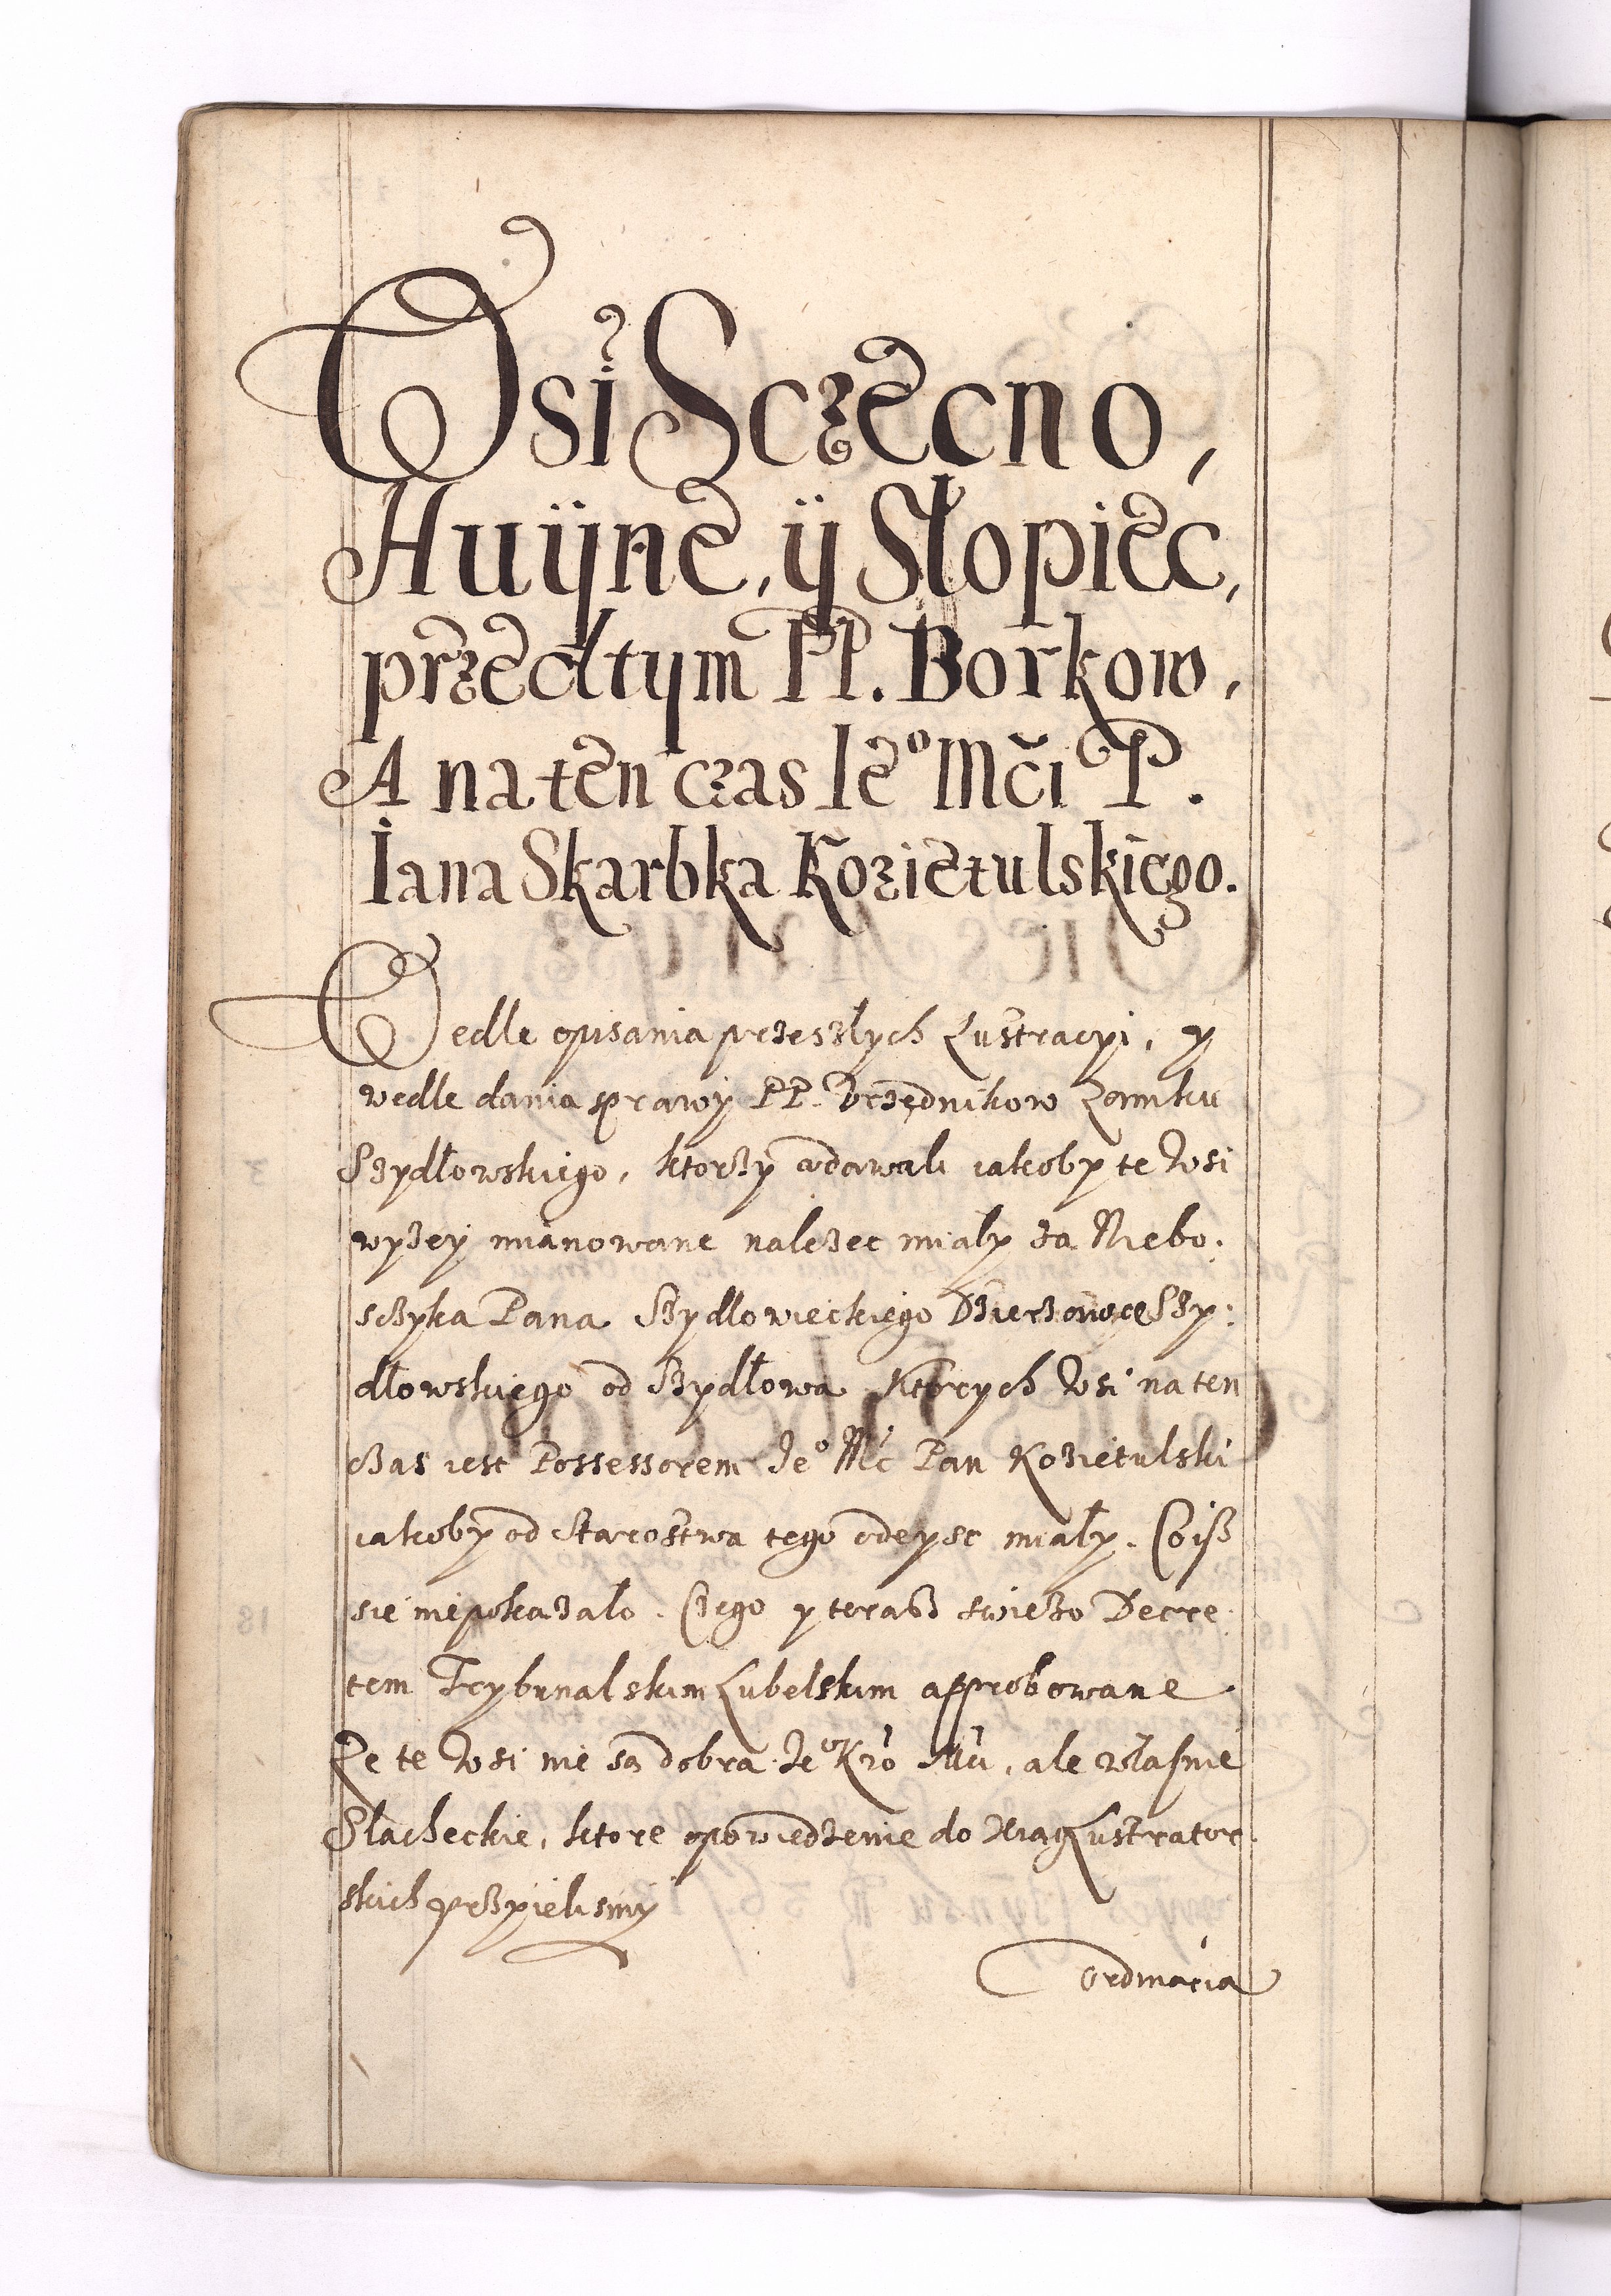 Wsi Sczecno,
Huÿne, ÿ Słopiec,
przedtym PP. Borkow,
A na ten czas Ie° Mći P.
Iana Skarbka Kozietulskiego.
Wedle opisania przeszłych Lustracyi, y
wedle dania sprawy PP. Vrzędnikow Zamku
Szydłowskiego, ktorzy udawali iakoby te Wsi
wyzey mianowane nalezec miały za Niebo.
sczyka Pana Szydłowieckiego Dzierzawce Szy:
dłowskiego od Szydłowa Ktorych Wsi na ten
czas iest Possessorem Je° Mć Pan Kozietulski
iakoby od Starostwa tego odeysc miały. Coisz
sie niepokazało. Czego y terasz swiezo Decre
tem Trybunalskim Lubelskim approbowane
Ze te Wsi nie są dobra Je° Kró Mći, ale własnie
Slacheckie, ktore opowiedzenie do Xiąg Lustrator
skich przyielismy
Ordinaria